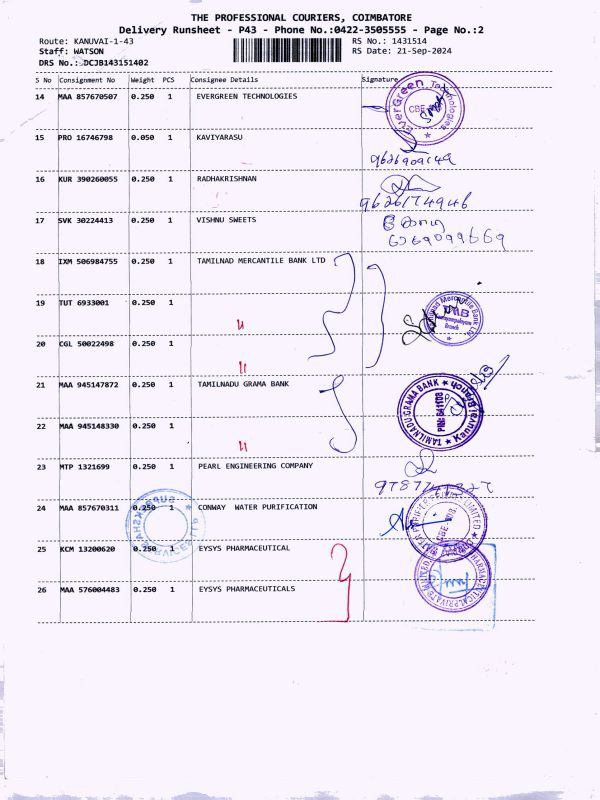 THE PROFESSIONAL COURIERS, COIMBATORE
Delivery Runsheet - P43 - Phone No.:0422-3505555 - Page No.:2
Route: KANUVAI-1-43 RS No.: 1431514
Staff: WATSON RS Date: 21-Sep-2024
DRS No.: DCJB143151402
S No Consignment No Weight PCS Consignee Details Signature
14 MAA 857670507 0.250 1 EVERGREEN TECHNOLOGIES
EverGreen Technologies
CBE
15 PRO 16746798 0.050 1 KAVIYARASU
9626909149
16 KUR 390260055 0.250 1 RADHAKRISHNAN
9626174946
17 SVK 30224413 0.250 1 VISHNU SWEETS
6369099669
18 IXM 506984755 0.250 1 TAMILNAD MERCANTILE BANK LTD
19 TUT 6933001 0.250 1
"
Tamilnad Mercantile Bank Ltd.
TMB
Branch
20 CGL 50022498 0.250 1
"
21 MAA 945147872 0.250 1 TAMILNADU GRAMA BANK
TAMILNADU GRAMA BANK
Kanuvai Branch
PIN: 641108
22 MAA 945148330 0.250 1
"
23 MTP 1321699 0.250 1 PEARL ENGINEERING COMPANY
24 MAA 857670311 0.250 1 CONWAY WATER PURIFICATION
25 KCM 13200620 0.250 1 EYSYS PHARMACEUTICAL
26 MAA 576004483 0.250 1 EYSYS PHARMACEUTICALS